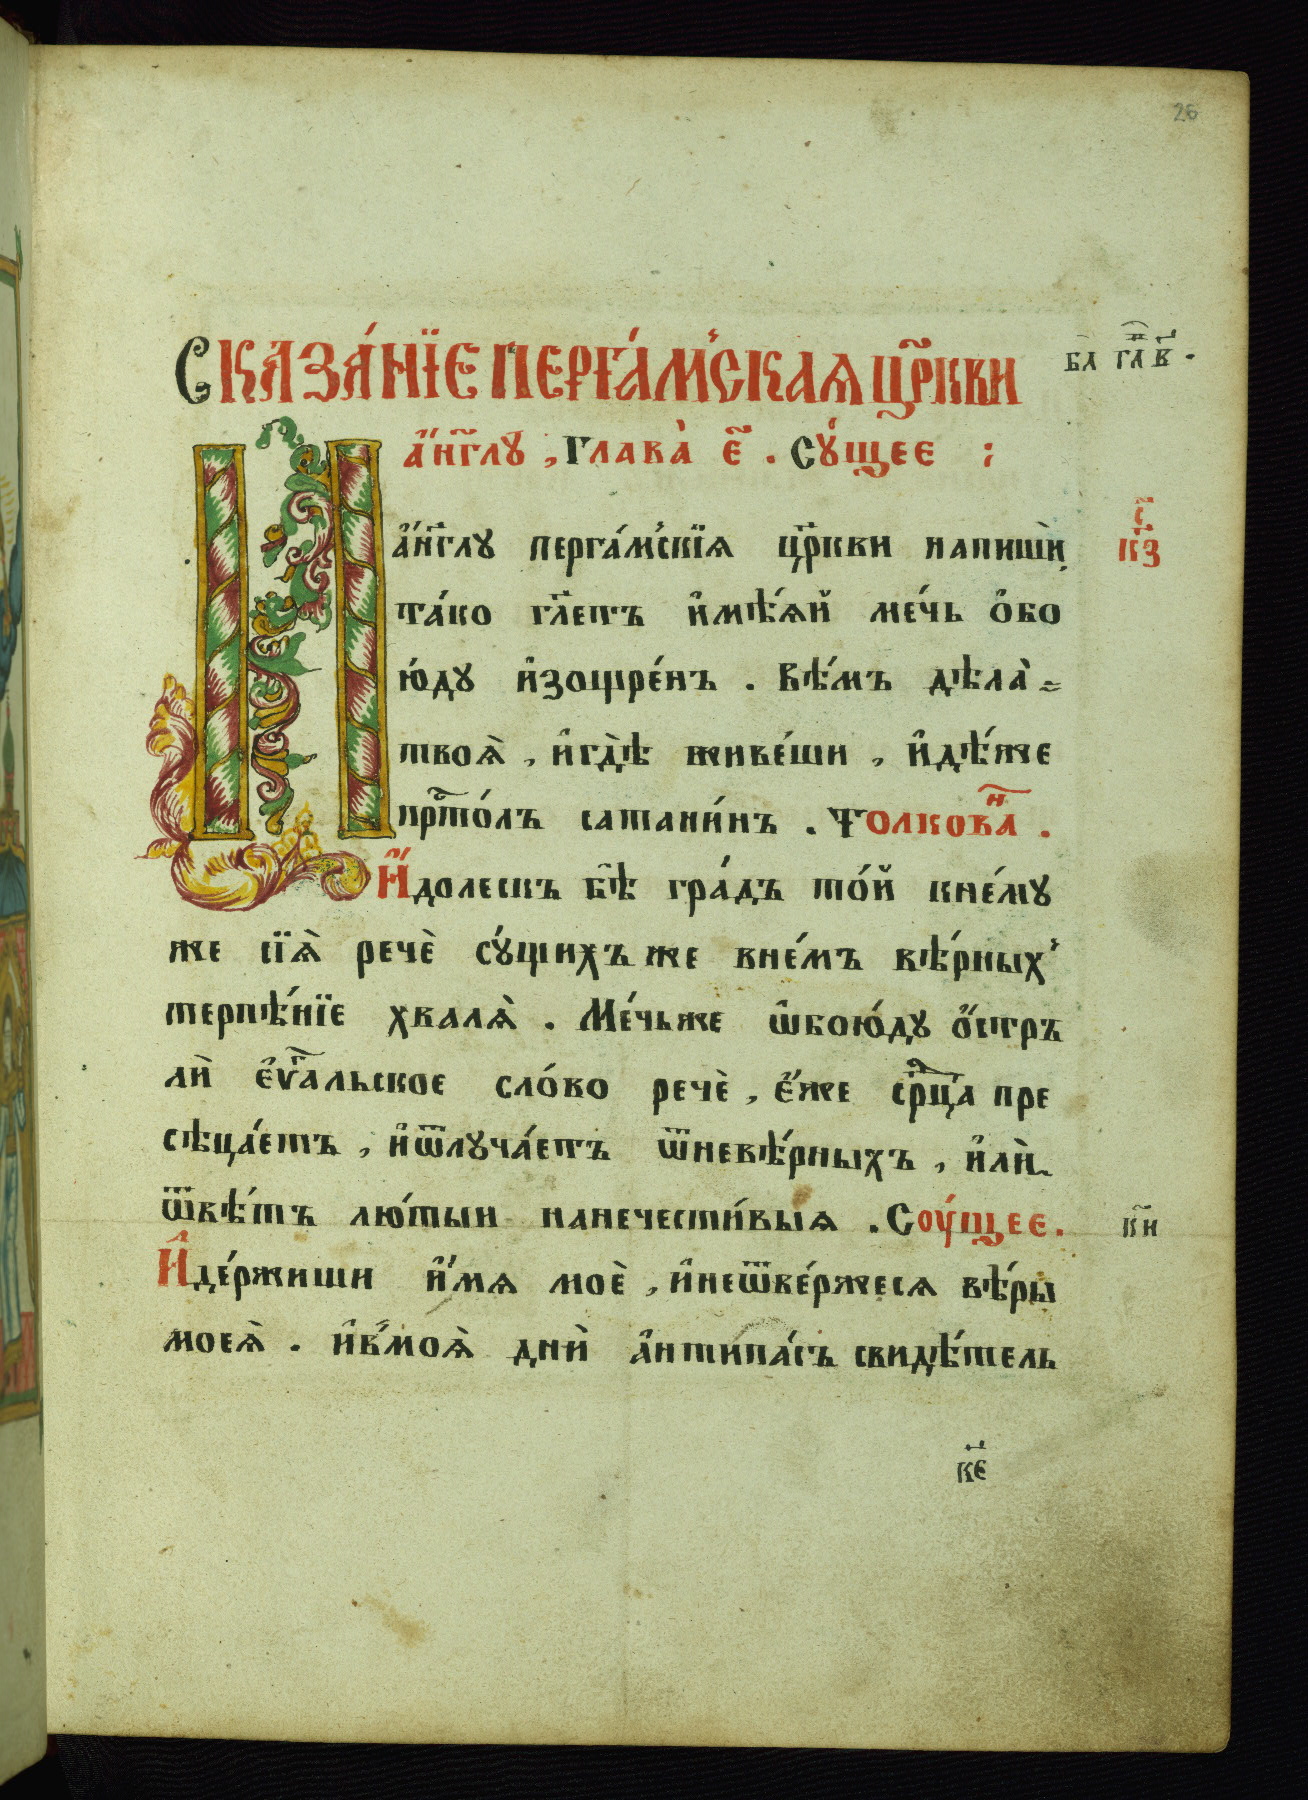 26
Сказа́нїе перга́мʼскаѧ цр҃кви
бл гл҃в .
а҆́нг҃лꙋ , Глава̀ е҃ . Сꙋ́щее :
И
а҆́нг҃лꙋ перга́мʼскїѧ цр҃кви напишѝ
с҃
к҃з
та́ко гл҃етъ и҆мѣ́ѧй ме́чь о҆бо
ю́дꙋ и҆зощре́нъ . вѣ́мъ дѣла̀ =
твоѧ̀ , и҆гдѣ̀ живе́ши , и҆дѣ́же
прⷭ҇то́лъ сатани́нъ . Толковаⷩ҇ .
И҆́долескъ бѣ̀ гра́дъ то́й кне́мꙋ
же сїѧ̀ речѐ сꙋ́щихъ же вне́мъ вѣ́рныхʼ
терпѣ́нїе хвалѧ̀ . Ме́чьже ѡ҆бою́дꙋ о҆́стръ
лѝ е҆ѵⷢ҇а́льское сло́во речѐ , е҆́же срⷣца пре
сѣца́етъ , и҆ѿлꙋча́етъ ѿневѣ́рныхъ , и҆лѝ
ѿвѣ́тъ лю́тыи нанечести́выѧ . Соу́щее .
к҃и
И҆де́ржиши и҆́мѧ моѐ , и҆неѿве́ржесѧ вѣ́ры
моеѧ̀ . и҆в̾моѧ̀ днѝ а҆нтипа́съ свидѣ́тель
к҃є